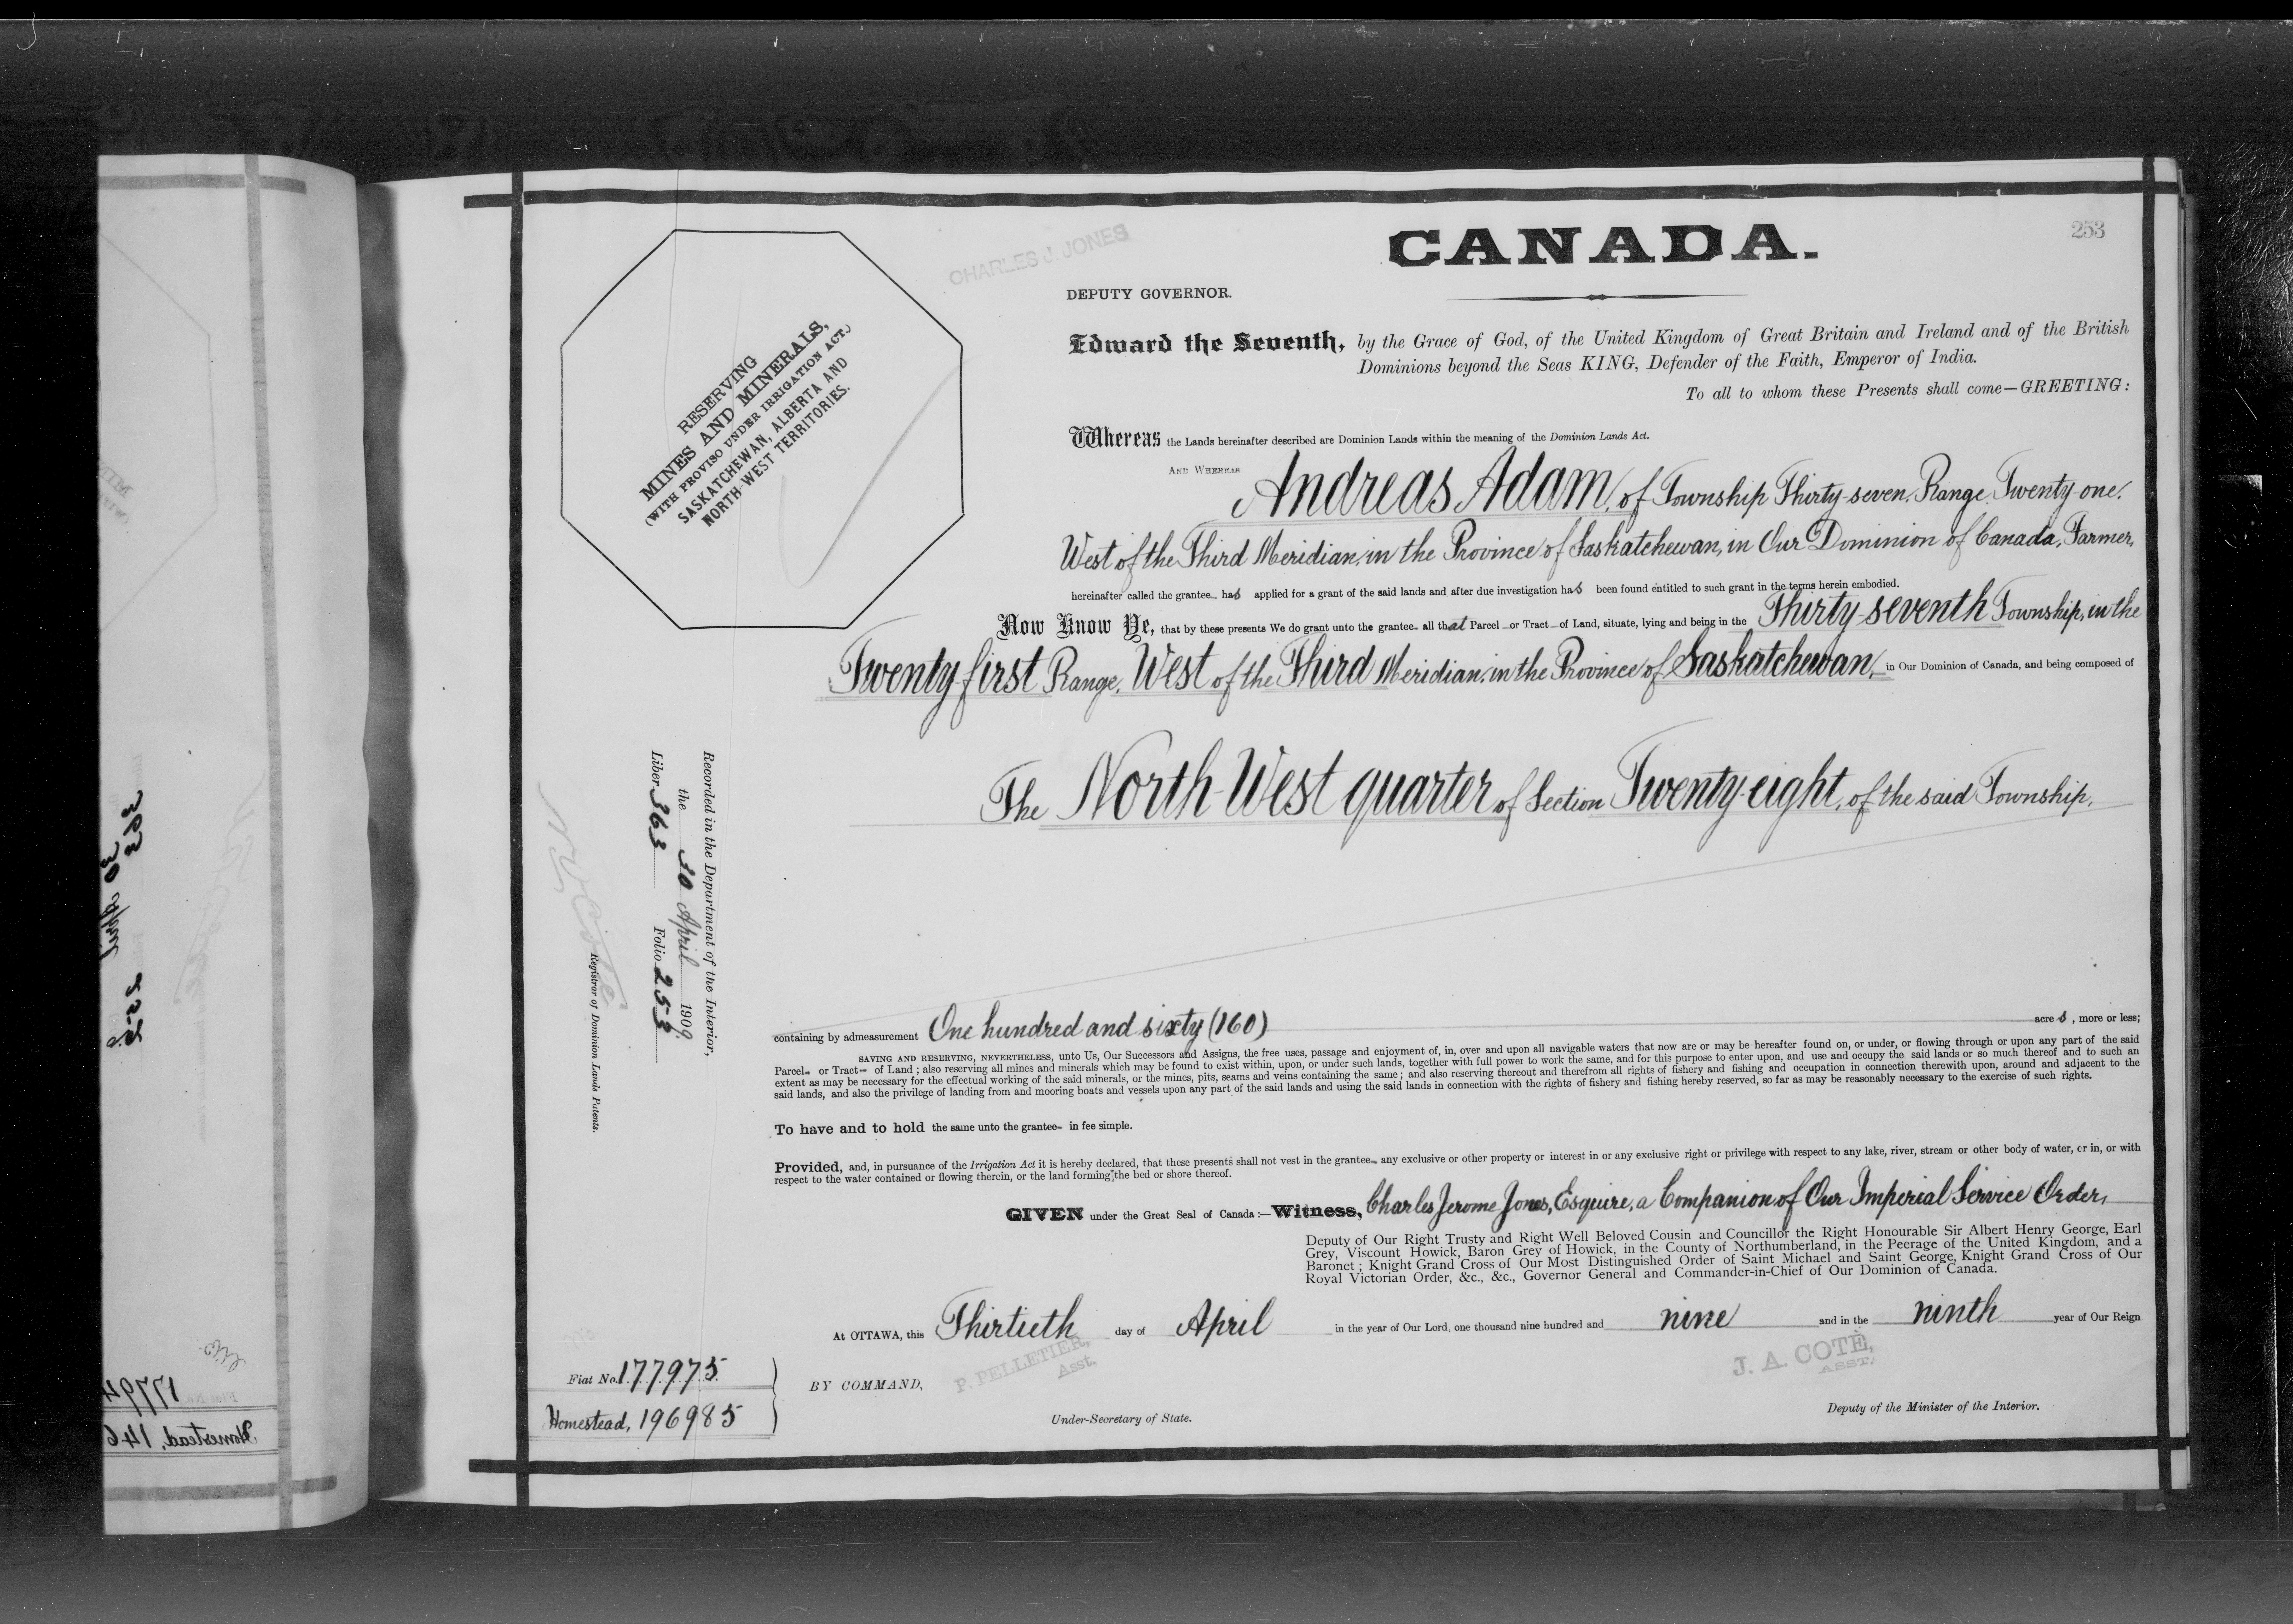 253
CHARLES J. JONES
CANADA.
DEPUTY GOVERNOR.
RESERVING
MINES AND MINERALS,
(WITH PROVISO UNDER IRRIGATION ACT.)
SASKATCHEWAN, ALBERTA AND
NORTH-WEST TERRITORIES.
Edward the Seventh, by the Grace of God, of the United Kingdom of Great Britain and Ireland and of the British
Dominions beyond the Seas KING, Defender of the Faith, Emperor of India.
To all to whom these Presents shall come—GREETING:
Whereas the Lands hereinafter described are Dominion Lands within the meaning of the Dominion Lands Act.
AND WHEREAS Andreas Adam, of Township Thirty-seven, Range Twenty-one,
West of the Third Meridian, in the Province of Saskatchewan, in Our Dominion of Canada, Farmer,
hereinafter called the grantee has applied for a grant of the said lands and after due investigation has been found entitled to such grant in the terms herein embodied.
Now Know Ye, that by these presents We do grant unto the grantee all that Parcel or Tract of Land, situate, lying and being in the Thirty-seventh Township, in the
Twenty-first Range, West of the Third Meridian, in the Province of Saskatchewan, in Our Dominion of Canada, and being composed of
The North West quarter of Section Twenty-eight, of the said Township,
containing by admeasurement One hundred and sixty (160) acres, more or less;
SAVING AND RESERVING, NEVERTHELESS, unto Us, Our Successors and Assigns, the free uses, passage and enjoyment of, in, over and upon all navigable waters that now are or may be hereafter found on, or under, or flowing through or upon any part of the said
Parcel or Tract of Land; also reserving all mines and minerals which may be found to exist within, upon, or under such lands, together with full power to work the same, and for this purpose to enter upon, and use and occupy the said lands or so much thereof and to such an
extent as may be necessary for the effectual working of the said minerals, or the mines, pits, seams and veins containing the same; and also reserving thereout and therefrom all rights of fishery and fishing and occupation in connection therewith upon, around and adjacent to the
said lands, and also the privilege of landing from and mooring boats and vessels upon any part of the said lands and using the said lands in connection with the rights of fishery and fishing hereby reserved, so far as may be reasonably necessary to the exercise of such rights.
To have and to hold the same unto the grantee in fee simple.
Provided, and, in pursuance of the Irrigation Act it is hereby declared, that these presents shall not vest in the grantee any exclusive or other property or interest in or any exclusive right or privilege with respect to any lake, river, stream or other body of water, or in, or with
respect to the water contained or flowing therein, or the land forming the bed or shore thereof.
GIVEN under the Great Seal of Canada:—Witness, Charles Jerome Jones, Esquire, a Companion of Our Imperial Service Order,
Deputy of Our Right Trusty and Right Well Beloved Cousin and Councillor the Right Honourable Sir Albert Henry George, Earl
Grey, Viscount Howick, Baron Grey of Howick, in the County of Northumberland, in the Peerage of the United Kingdom, and a
Baronet; Knight Grand Cross of Our Most Distinguished Order of Saint Michael and Saint George, Knight Grand Cross of Our
Royal Victorian Order, &c., &c., Governor General and Commander-in-Chief of Our Dominion of Canada.
At OTTAWA, this Thirtieth day of April in the year of Our Lord, one thousand nine hundred and nine and in the ninth year of Our Reign
P. PELLETIER,
Asst.
J. A. COTÉ,
ASST.
BY COMMAND,
Under-Secretary of State.
Deputy of the Minister of the Interior.
Fiat No. 177975
Homestead, 196985
Recorded in the Department of the Interior,
the 30 April 1909
Liber 363 Folio 253
N. O. Coté
Registrar of Dominion Lands Patents.